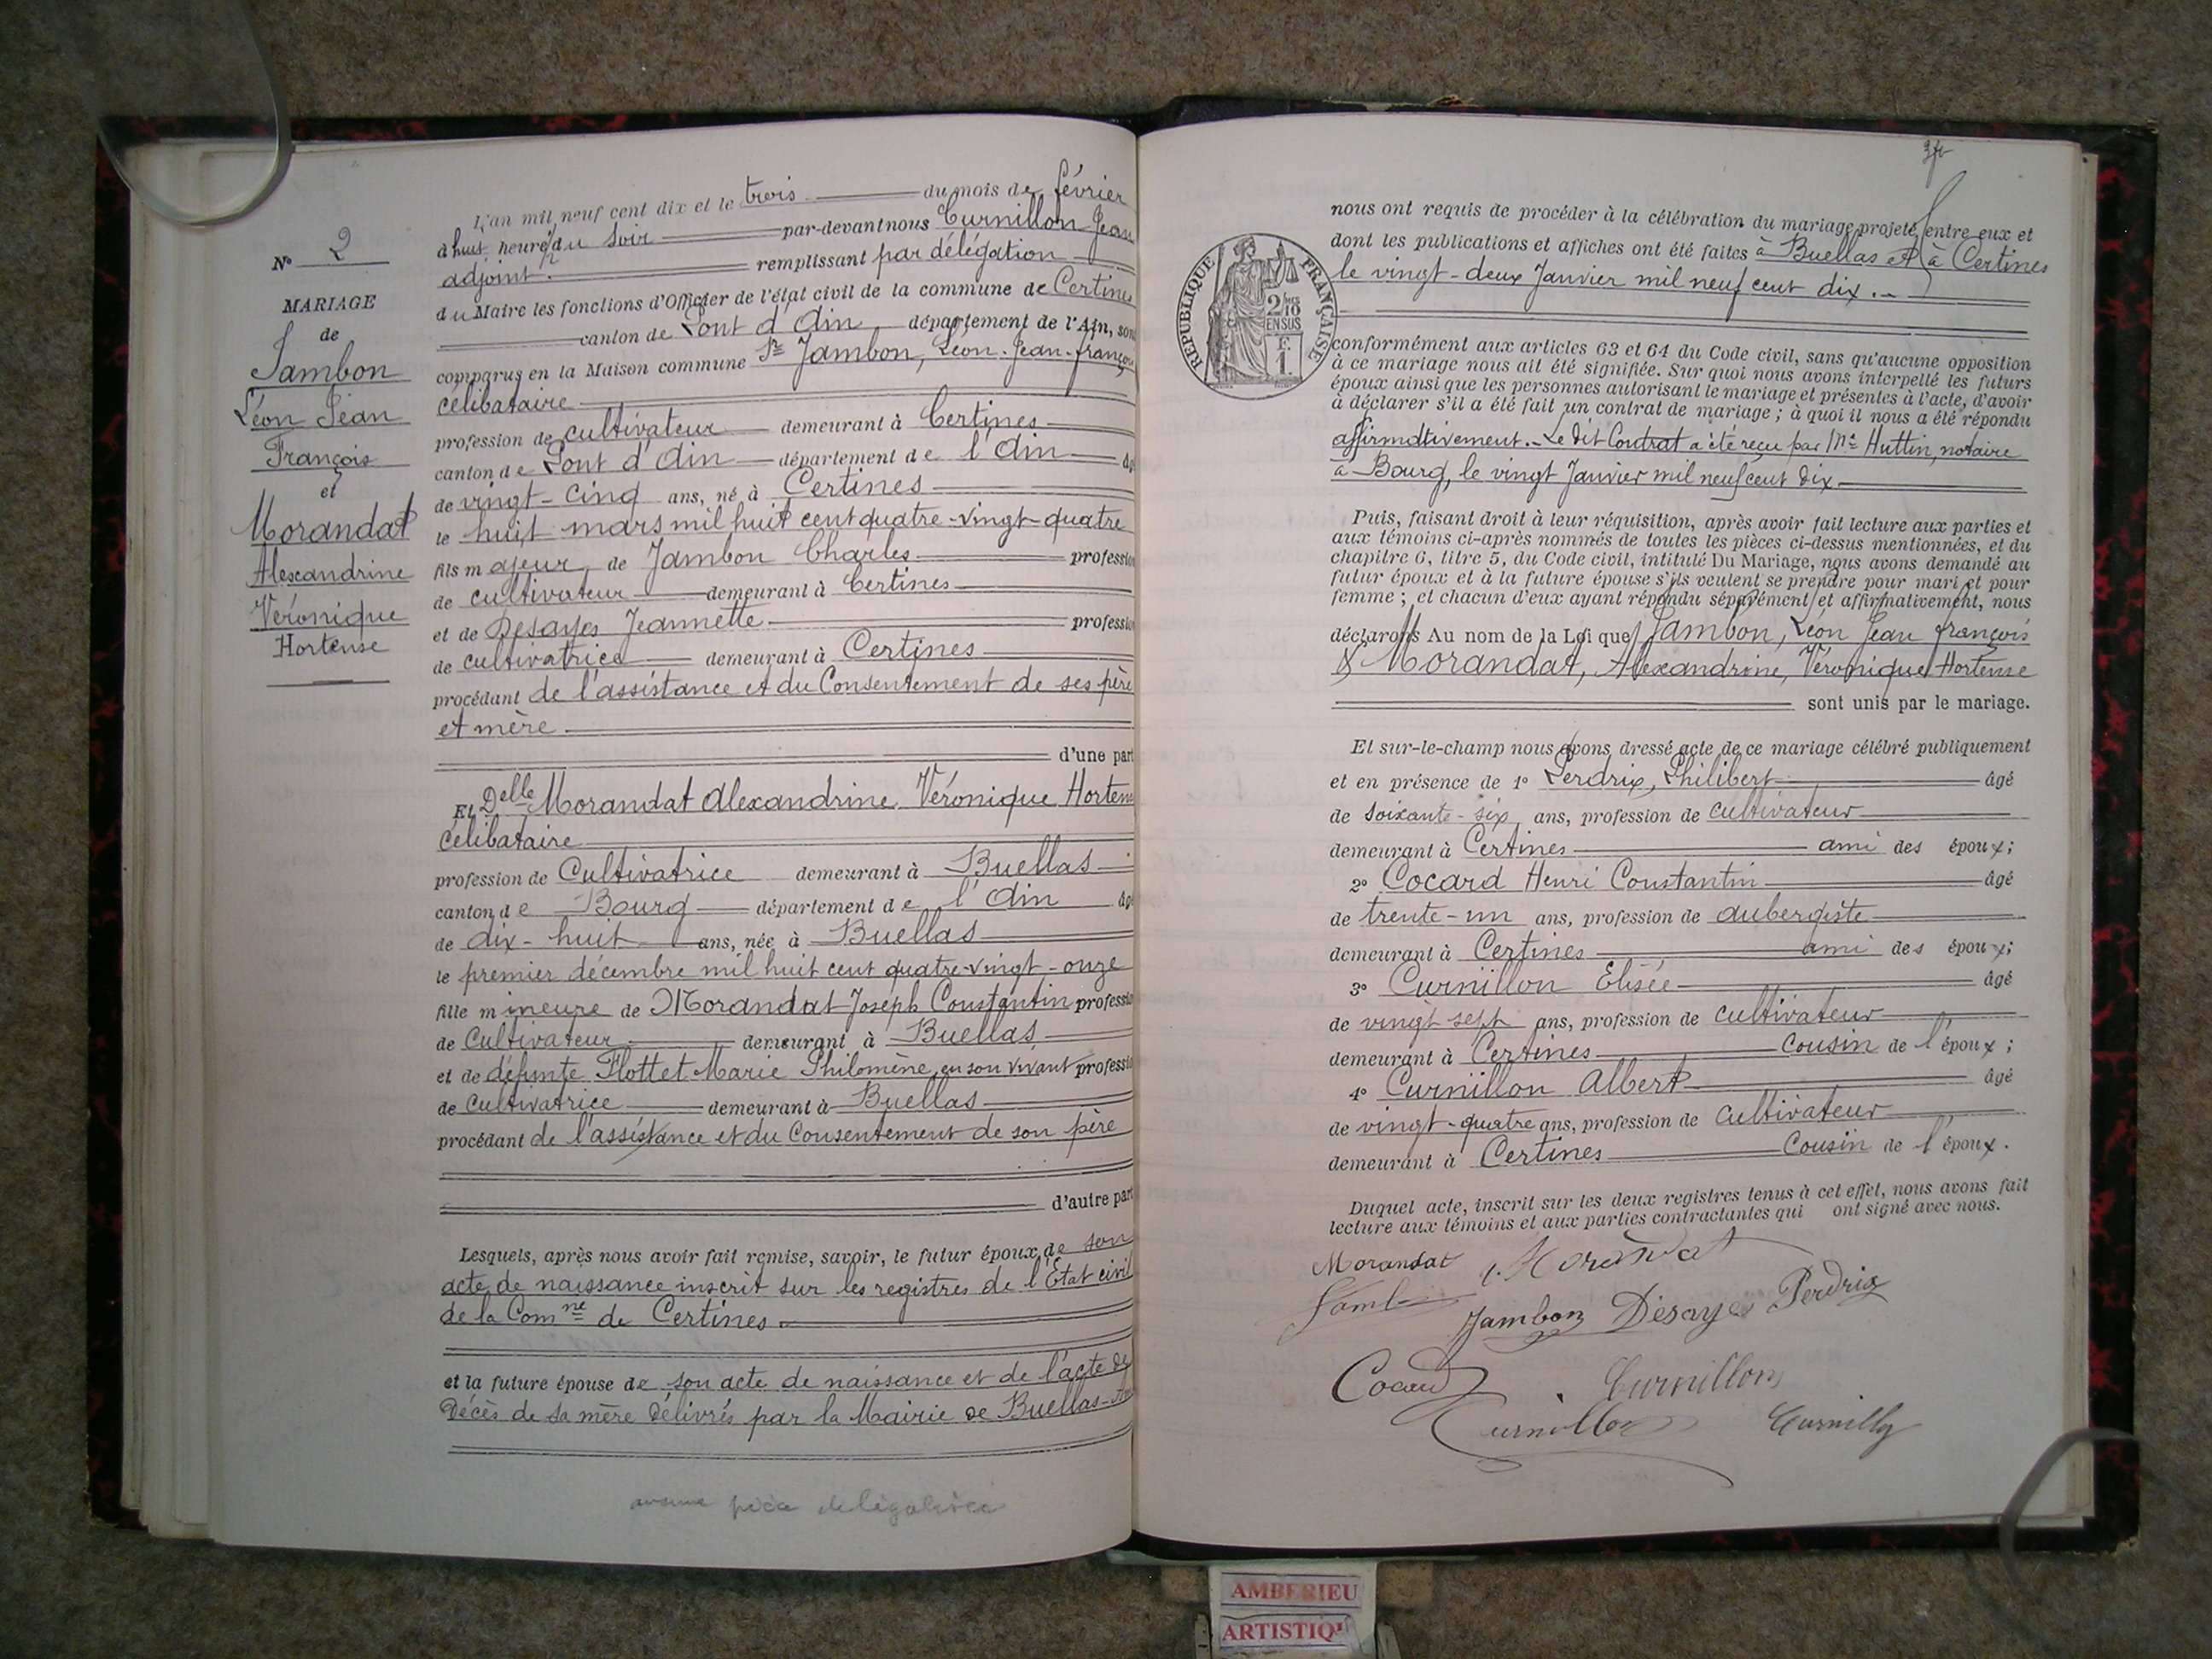 N° 2
MARIAGE
de
Jambon
Léon Jean
François
et
Morandat
Alexandrine
Véronique
Hortense
L'an mil neuf cent dix et le trois du mois de février
à huit heures du soir par-devant nous Curnillon Jean
adjoint remplissant par délégation
du Maire les fonctions d'Officier de l'état civil de la commune de Certines
canton de Pont d'Ain département de l'Ain, sont
comparus en la Maison commune Sr Jambon, Léon-Jean-françois
célibataire
profession de cultivateur demeurant à Certines
canton de Pont d'Ain département de l'Ain âgé
de vingt-cinq ans, né à Certines
le huit mars mil huit cent quatre-vingt-quatre
fils majeur de Jambon Charles profession
de cultivateur demeurant à Certines
et de Desayes Jeannette profession
de cultivatrice demeurant à Certines
procédant de l'assistance et du Consentement de ses père
et mère
d'une part
Et Delle Morandat Alexandrine Véronique Hortense
célibataire
profession de Cultivatrice demeurant à Buellas
canton de Bourg département de l'Ain âgé
de dix-huit ans, née à Buellas
le premier décembre mil huit cent quatre-vingt-onze
fille mineure de Morandat Joseph Constantin profession
de Cultivateur demeurant à Buellas
et de défunte Flottet Marie Philomène, en son vivant profession
de Cultivatrice demeurant à Buellas
procédant de l'assistance et du Consentement de son père
d'autre part
Lesquels, après nous avoir fait remise, savoir, le futur époux, de son
acte de naissance inscrit sur les registres de l'État civil
de la Comne de Certines
et la future épouse de son acte de naissance et de l'acte de
Décès de sa mère délivrés par la Mairie de Buellas
pièce de légalisée
nous ont requis de procéder à la célébration du mariage projeté entre eux et
dont les publications et affiches ont été faites à Buellas et à Certines
le vingt-deux Janvier mil neuf cent dix.
RÉPUBLIQUE FRANÇAISE
2/10
EN SUS
F.
1.
conformément aux articles 63 et 64 du Code civil, sans qu'aucune opposition
à ce mariage nous ait été signifiée. Sur quoi nous avons interpellé les futurs
époux ainsi que les personnes autorisant le mariage et présentes à l'acte, d'avoir
à déclarer s'il a été fait un contrat de mariage ; à quoi il nous a été répondu
affirmativement. Le dit Contrat a été reçu par Me Huttin, notaire
à Bourg, le vingt Janvier mil neuf cent dix
Puis, faisant droit à leur réquisition, après avoir fait lecture aux parties et
aux témoins ci-après nommés de toutes les pièces ci-dessus mentionnées, et du
chapitre 6, titre 5, du Code civil, intitulé Du Mariage, nous avons demandé au
futur époux et à la future épouse s'ils veulent se prendre pour mari et pour
femme ; et chacun d'eux ayant répondu séparément et affirmativement, nous
déclarons Au nom de la Loi que Jambon, Léon Jean françois
& Morandat, Alexandrine, Véronique Hortense
sont unis par le mariage.
Et sur-le-champ nous avons dressé acte de ce mariage célébré publiquement
et en présence de 1° Perdrix, Philibert âgé
de soixante-six ans, profession de cultivateur
demeurant à Certines ami des époux;
2° Cocard Henri Constantin âgé
de trente-un ans, profession de aubergiste
demeurant à Certines ami des époux;
3° Curnillon Elisée âgé
de vingt sept ans, profession de cultivateur
demeurant à Certines Cousin de l'époux ;
4° Curnillon Albert âgé
de vingt-quatre ans, profession de cultivateur
demeurant à Certines Cousin de l'époux.
Duquel acte, inscrit sur les deux registres tenus à cet effet, nous avons fait
lecture aux témoins et aux parties contractantes qui ont signé avec nous.
Morandat Morandat
Jambon Desayes Perdrix
Cocard Curnillon
Curnillon
AMBERIEU
ARTISTIQU